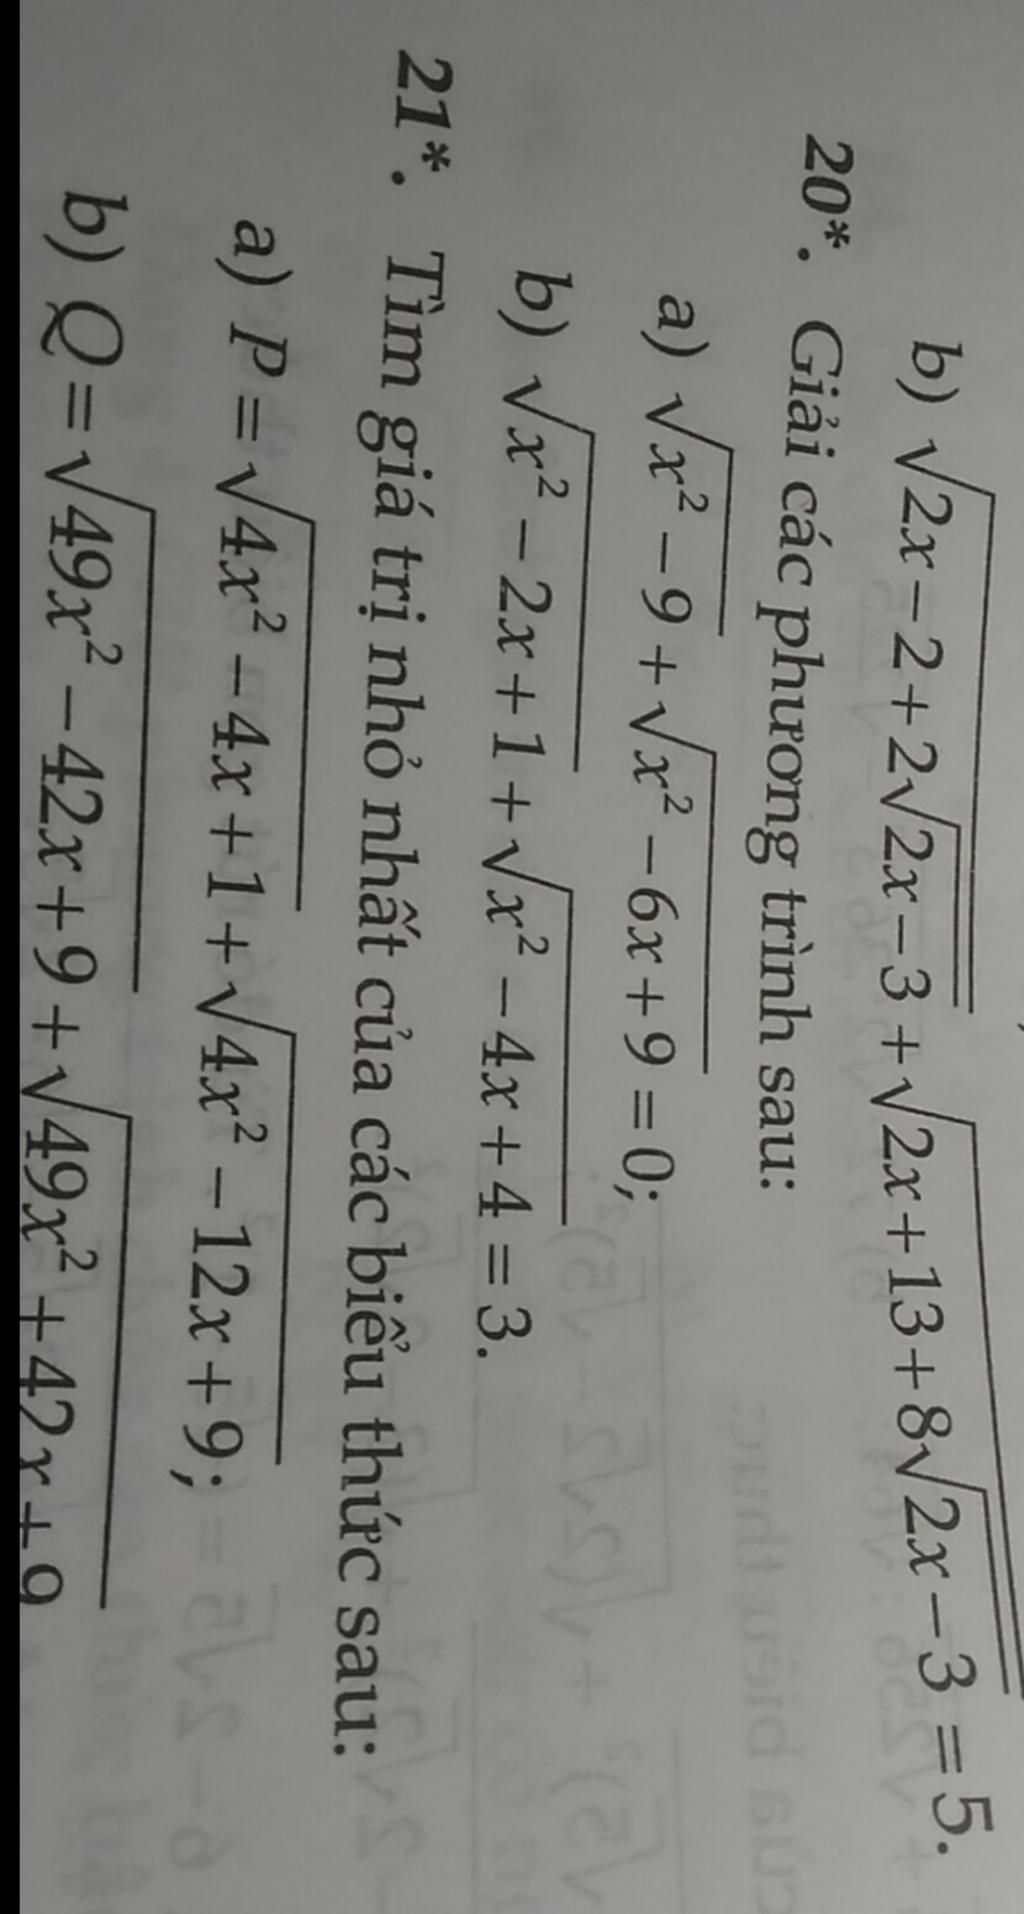 b) √(2x − 2 + 2√(2x − 3)) + √(2x + 13 + 8√(2x − 3)) = 5.
20*. Giải các phương trình sau:
a) √(x² − 9) + √(x² − 6x + 9) = 0;
b) √(x² − 2x + 1) + √(x² − 4x + 4) = 3.
21*. Tìm giá trị nhỏ nhất của các biểu thức sau:
a) P = √(4x² − 4x + 1) + √(4x² − 12x + 9);
b) Q = √(49x² − 42x + 9) + √(49x² + 42x + 9)